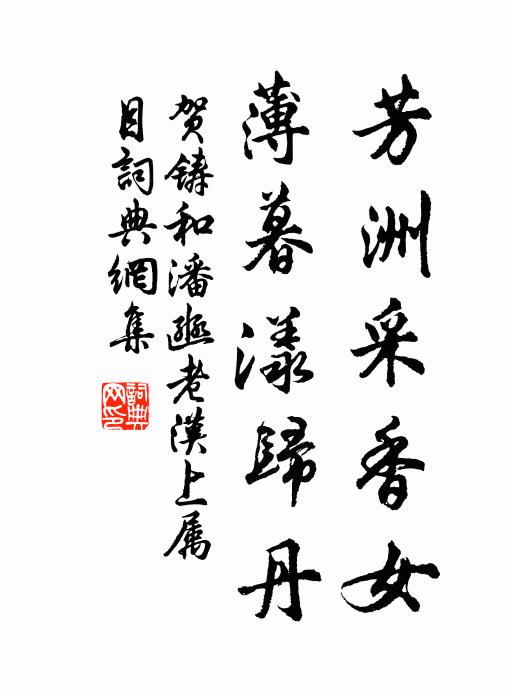 芳洲采香女
薄暮漾歸丹
贺鑄和潘邂老漢上属
目詞典網集
詞典网印